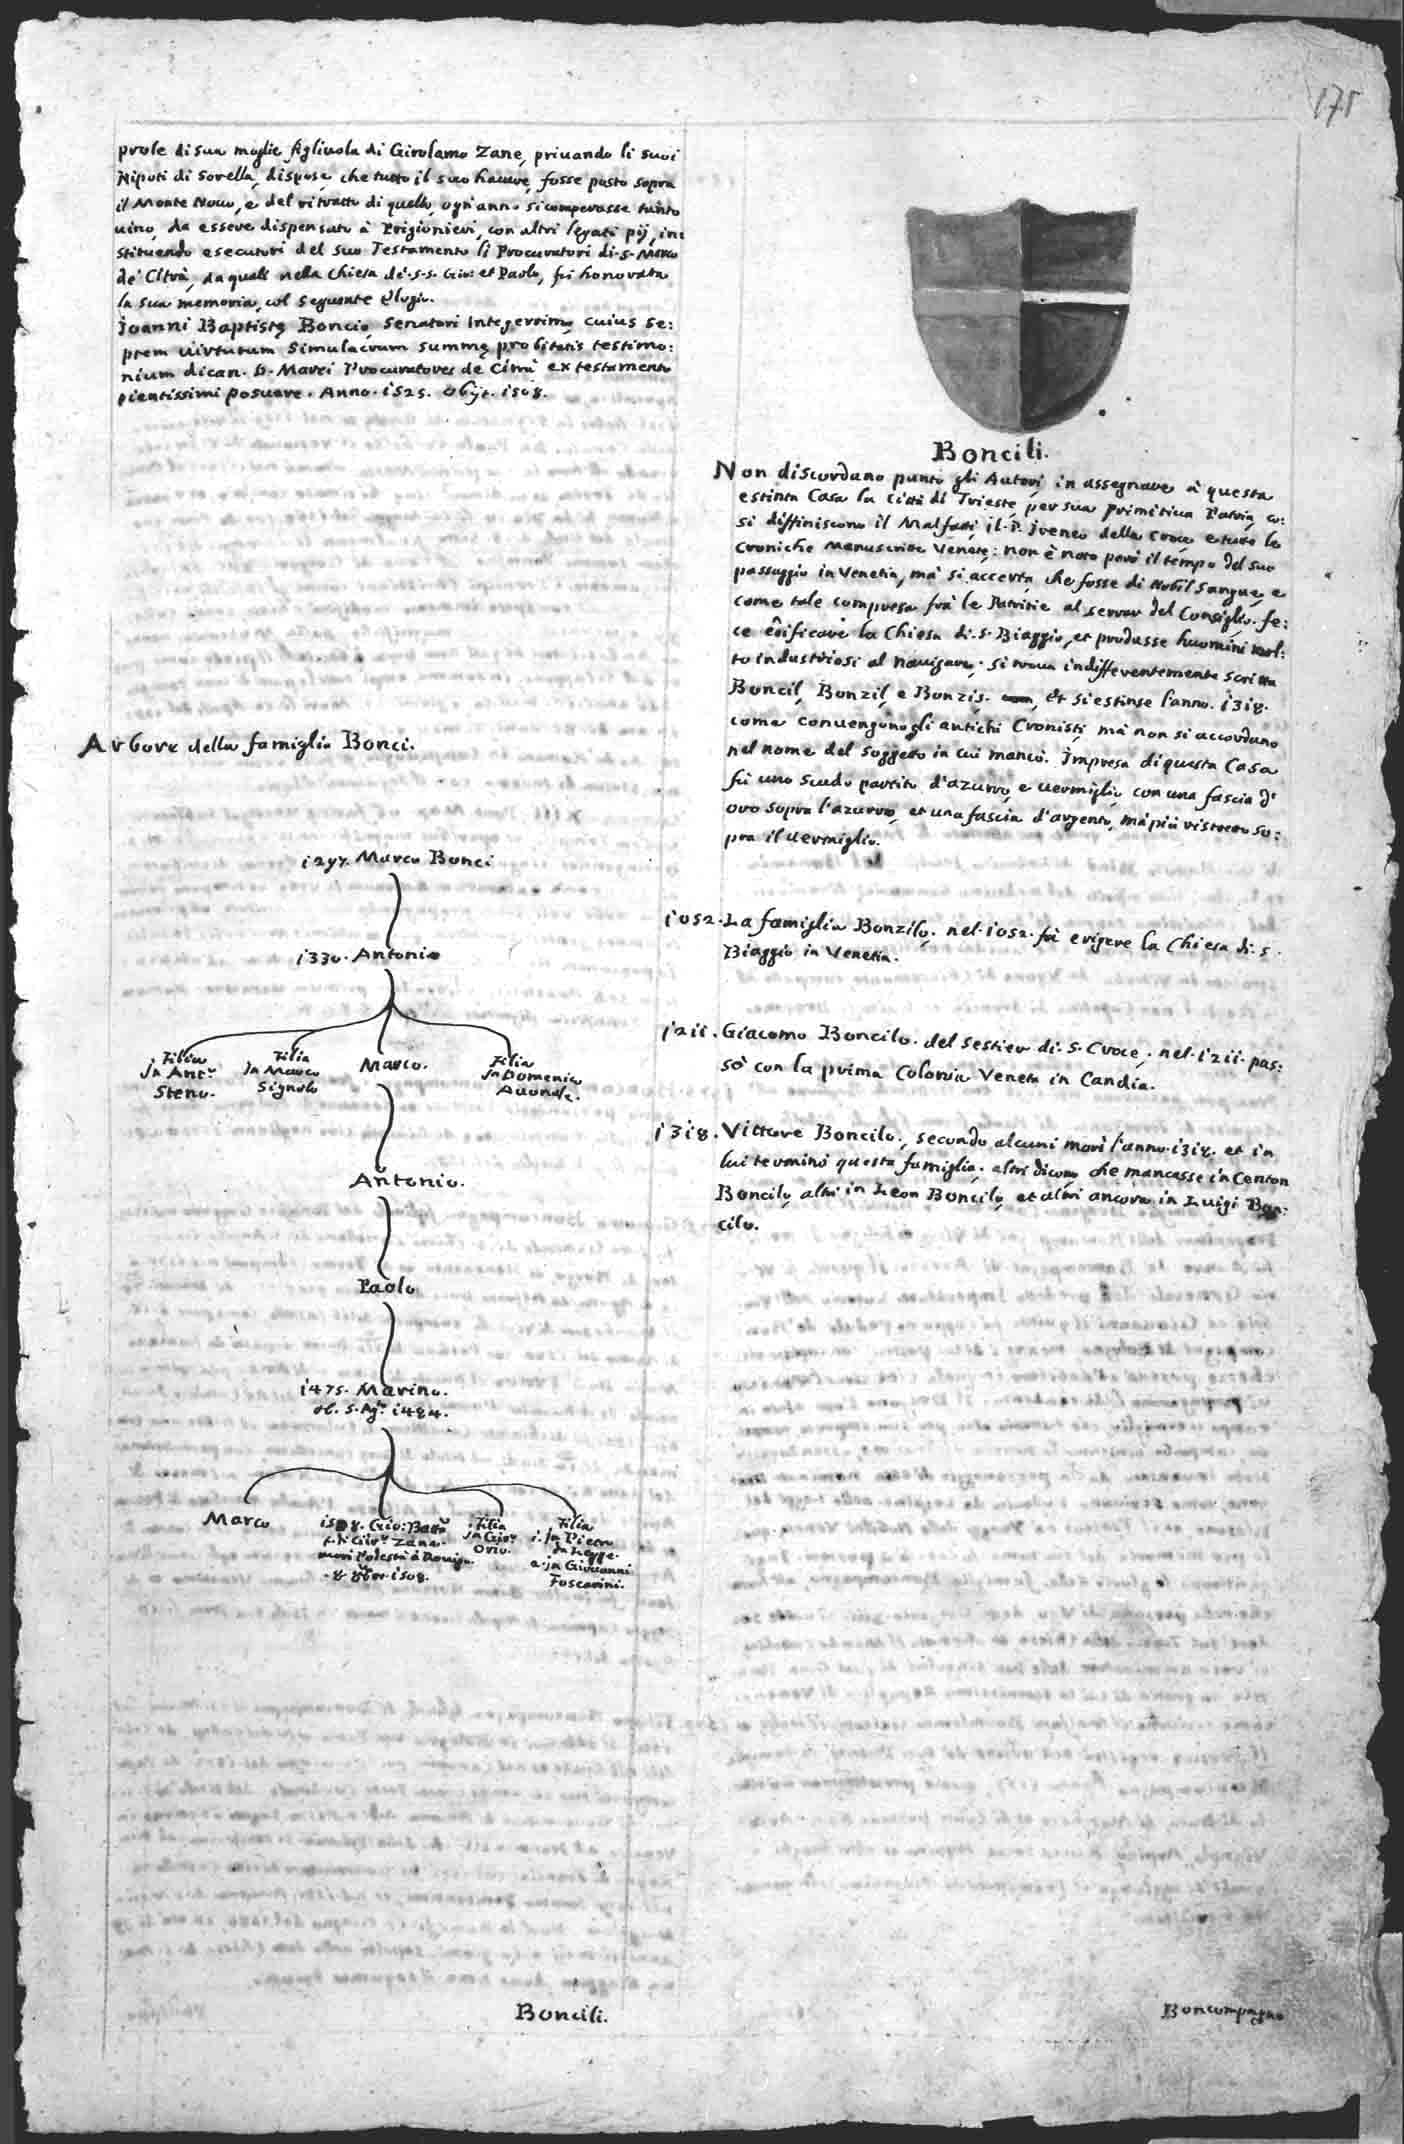 175
prole di sua moglie figliuola di Girolamo Zane, priuando li suoi
Nipoti di sorella, dispose, che tutto il suo hauere, fosse posto sopra
il Monte Nouo, e del ritratto di quello, ogn'anno si comperasse tanto
uino, da essere dispensato à Prigionieri, con altri legati pij, in:
stituendo esecutori del suo Testamento li Procuratori di S. Marco
de' Citrà, da quali nella Chiesa de' S.S. Gio: et Paolo, fù honorata
la sua memoria, col seguente elogio.
Joanni Baptistę Boncio, Senatori Integerrimo, cuius se:
ptem uirtutum simulacrum summę probitatis testimo:
nium dican. D. Marci Procuratores de Citrà ex testamento
pientissimi posuere. Anno. 1525. Obijt. 1508.
Arbore della famiglia Bonci.
1297. Marco Bonci
1330. Antonio
Filia
Jn Antº
Steno.
Filia
Jn Marco
Signolo
Marco.
Filia
Jn Domenico
Auonal.
Antonio.
Paolo
1475. Marino.
ob. 5. Agº 1484.
Marco
1508. Gio: Battª
Girº Zane.
morì Podestà à Rouigo
8 8bre 1508.
Filia
Jn Giorº
Orio.
Filia
1. Jn Pietro
da Lezze.
2. Jn Giouanni
Foscarini.
Boncili.
Boncili.
Non discordano punto gli Autori, in assegnare à questa
estinta Casa la Città di Trieste, per sua primitiua Patria, co:
si diffiniscono il Malfatti, il P. Ireneo della Croce, e tutte le
Croniche Manuscritte Venete: non è noto però il tempo del suo
passaggio in Venetia, mà si accerta, che fosse di Nobil Sangue, e
come tale compresa frà le Patritie al serrar del Consiglio. fe:
ce edificare la Chiesa di S. Biaggio, et produsse huomini mol:
to industriosi al nauigare. si troua indifferentemente scritta
Boncil, Bonzil, e Bonzis. Et si estinse l'anno. 1318.
come conuengono gli antichi Cronisti, mà non si accordano
nel nome del soggetto in cui mancò. Impresa di questa Casa
fù uno scudo partito d'azurro, e uermiglio, con una fascia d'
oro sopra l'azurro, et una fascia d'argento, mà più ristretto so:
pra il uermiglio.
1052. La famiglia Bonzilo. nel. 1052. fà erigere la Chiesa di. S.
Biaggio in Venetia.
1211. Giacomo Boncilo. del sestier di. S. Croce, nel. 1211. pas:
sò con la prima Colonia Veneta in Candia.
1318. Vittore Boncilo, secondo alcuni morì l'anno. 1318. et in
lui terminò questa famiglia. altri dicono, che mancasse in Centon
Boncilo, altri in Leon Boncilo, et altri ancora in Luigi Bon:
cilo.
Boncompagno